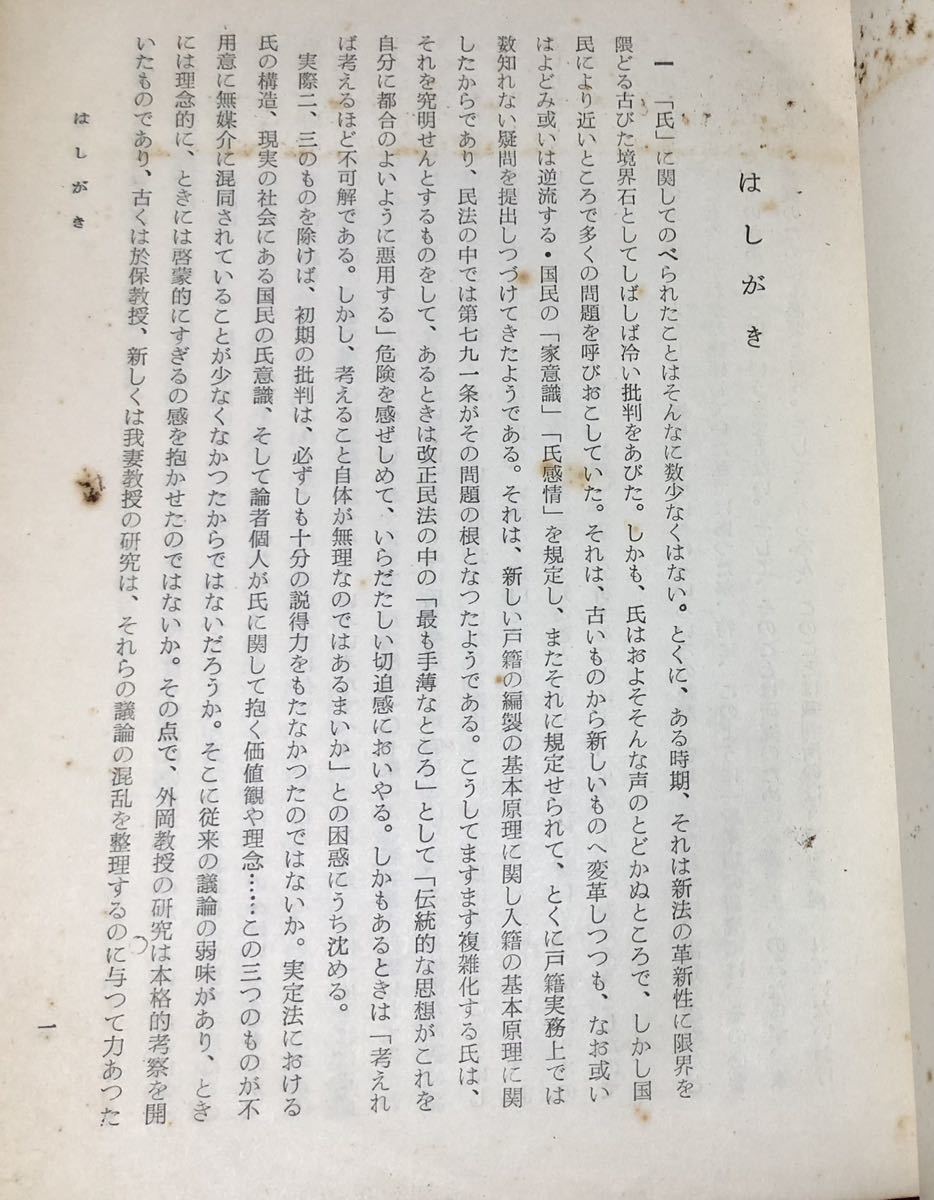 はしがき
一　「氏」に関してのべられたことはそんなに数少なくはない。とくに、ある時期、それは新法の革新性に限界を
限どる古びた境界石としてしばしば冷い批判をあびた。しかも、氏はおよそそんな声のとどかぬところで、しかし国
民により近いところで多くの問題を呼びおこしていた。それは、古いものから新しいものへ変革しつつも、なお或い
はよどみ或いは逆流する・国民の「家意識」「氏感情」を規定し、またそれに規定せられて、とくに戸籍実務上では
数知れない疑問を提出しつづけてきたようである。それは、新しい戸籍の編製の基本原理に関し入籍の基本原理に関
したからであり、民法の中では第七九一条がその問題の根となつたようである。こうしてますます複雑化する氏は、
それを究明せんとするものをして、あるときは改正民法の中の「最も手薄なところ」として「伝統的な思想がこれを
自分に都合のよいように悪用する」危険を感ぜしめて、いらだたしい切迫感においやる。しかもあるときは「考えれ
ば考えるほど不可解である。しかし、考えること自体が無理なのではあるまいか」との困惑にうち沈める。
実際二、三のものを除けば、初期の批判は、必ずしも十分の説得力をもたなかつたのではないか。実定法における
氏の構造、現実の社会にある国民の氏意識、そして論者個人が氏に関して抱く価値観や理念……この三つのものが不
用意に無媒介に混同されていることが少なくなかつたからではないだろうか。そこに従来の議論の弱味があり、とき
には理念的に、ときには啓蒙的にすぎるの感を抱かせたのではないか。その点で、外岡教授の研究は本格的考察を開
いたものであり、古くは於保教授、新しくは我妻教授の研究は、それらの議論の混乱を整理するのに与つて力あつた
はしがき
一